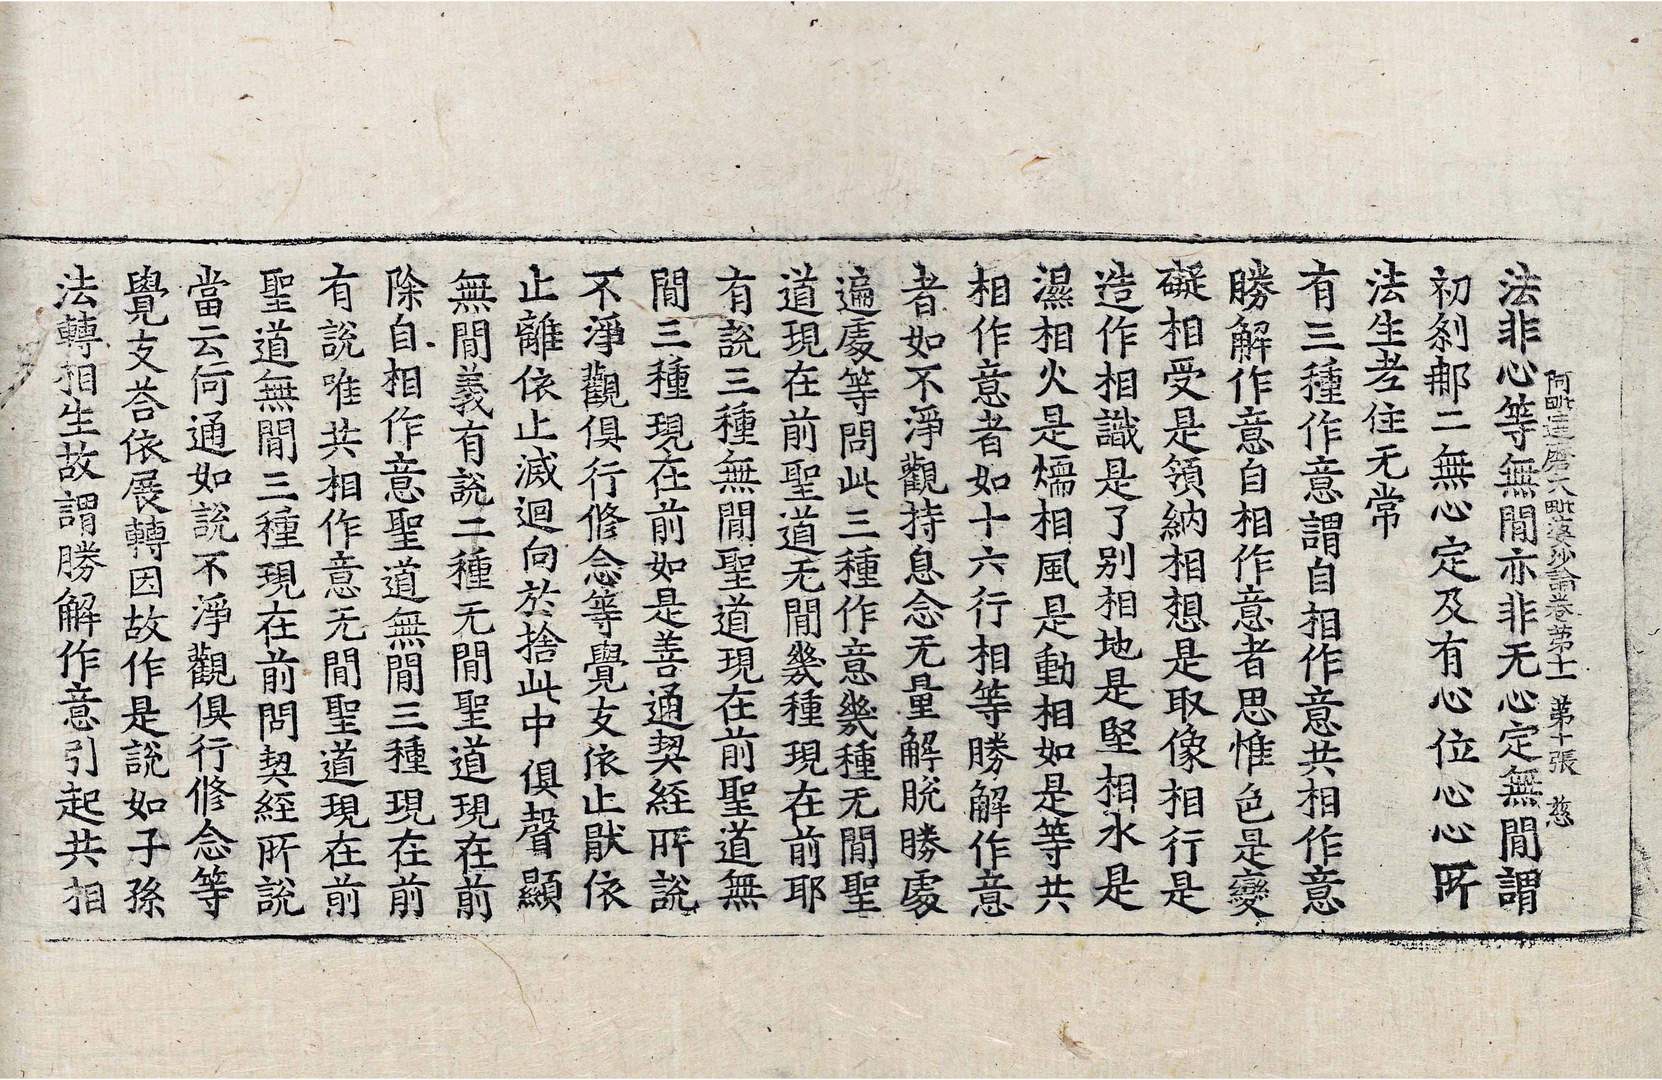 阿毗達磨大毗婆沙論卷第十一 第十張 慈
法非心等無閒亦非无心定無閒謂
初剎那二無心定及有心位心心所
法生老住无常
有三種作意謂自相作意共相作意
勝解作意自相作意者思惟色是變
礙相受是領納相想是取像相行是
造作相識是了別相地是堅相水是
濕相火是煗相風是動相如是等共
相作意者如十六行相等勝解作意
者如不淨觀持息念无量解脫勝處
遍處等問此三種作意幾種无閒聖
道現在前聖道无閒幾種現在前耶
有說三種無閒聖道現在前聖道無
閒三種現在前如是善通契經所說
不淨觀俱行修念等覺支依止猒依
止離依止滅迴向於捨此中俱聲顯
無閒義有說二種无閒聖道現在前
除自相作意聖道無閒三種現在前
有說唯共相作意无閒聖道現在前
聖道無閒三種現在前問契經所說
當云何通如說不淨觀俱行修念等
覺支荅依展轉因故作是說如子孫
法轉相生故謂勝解作意引起共相